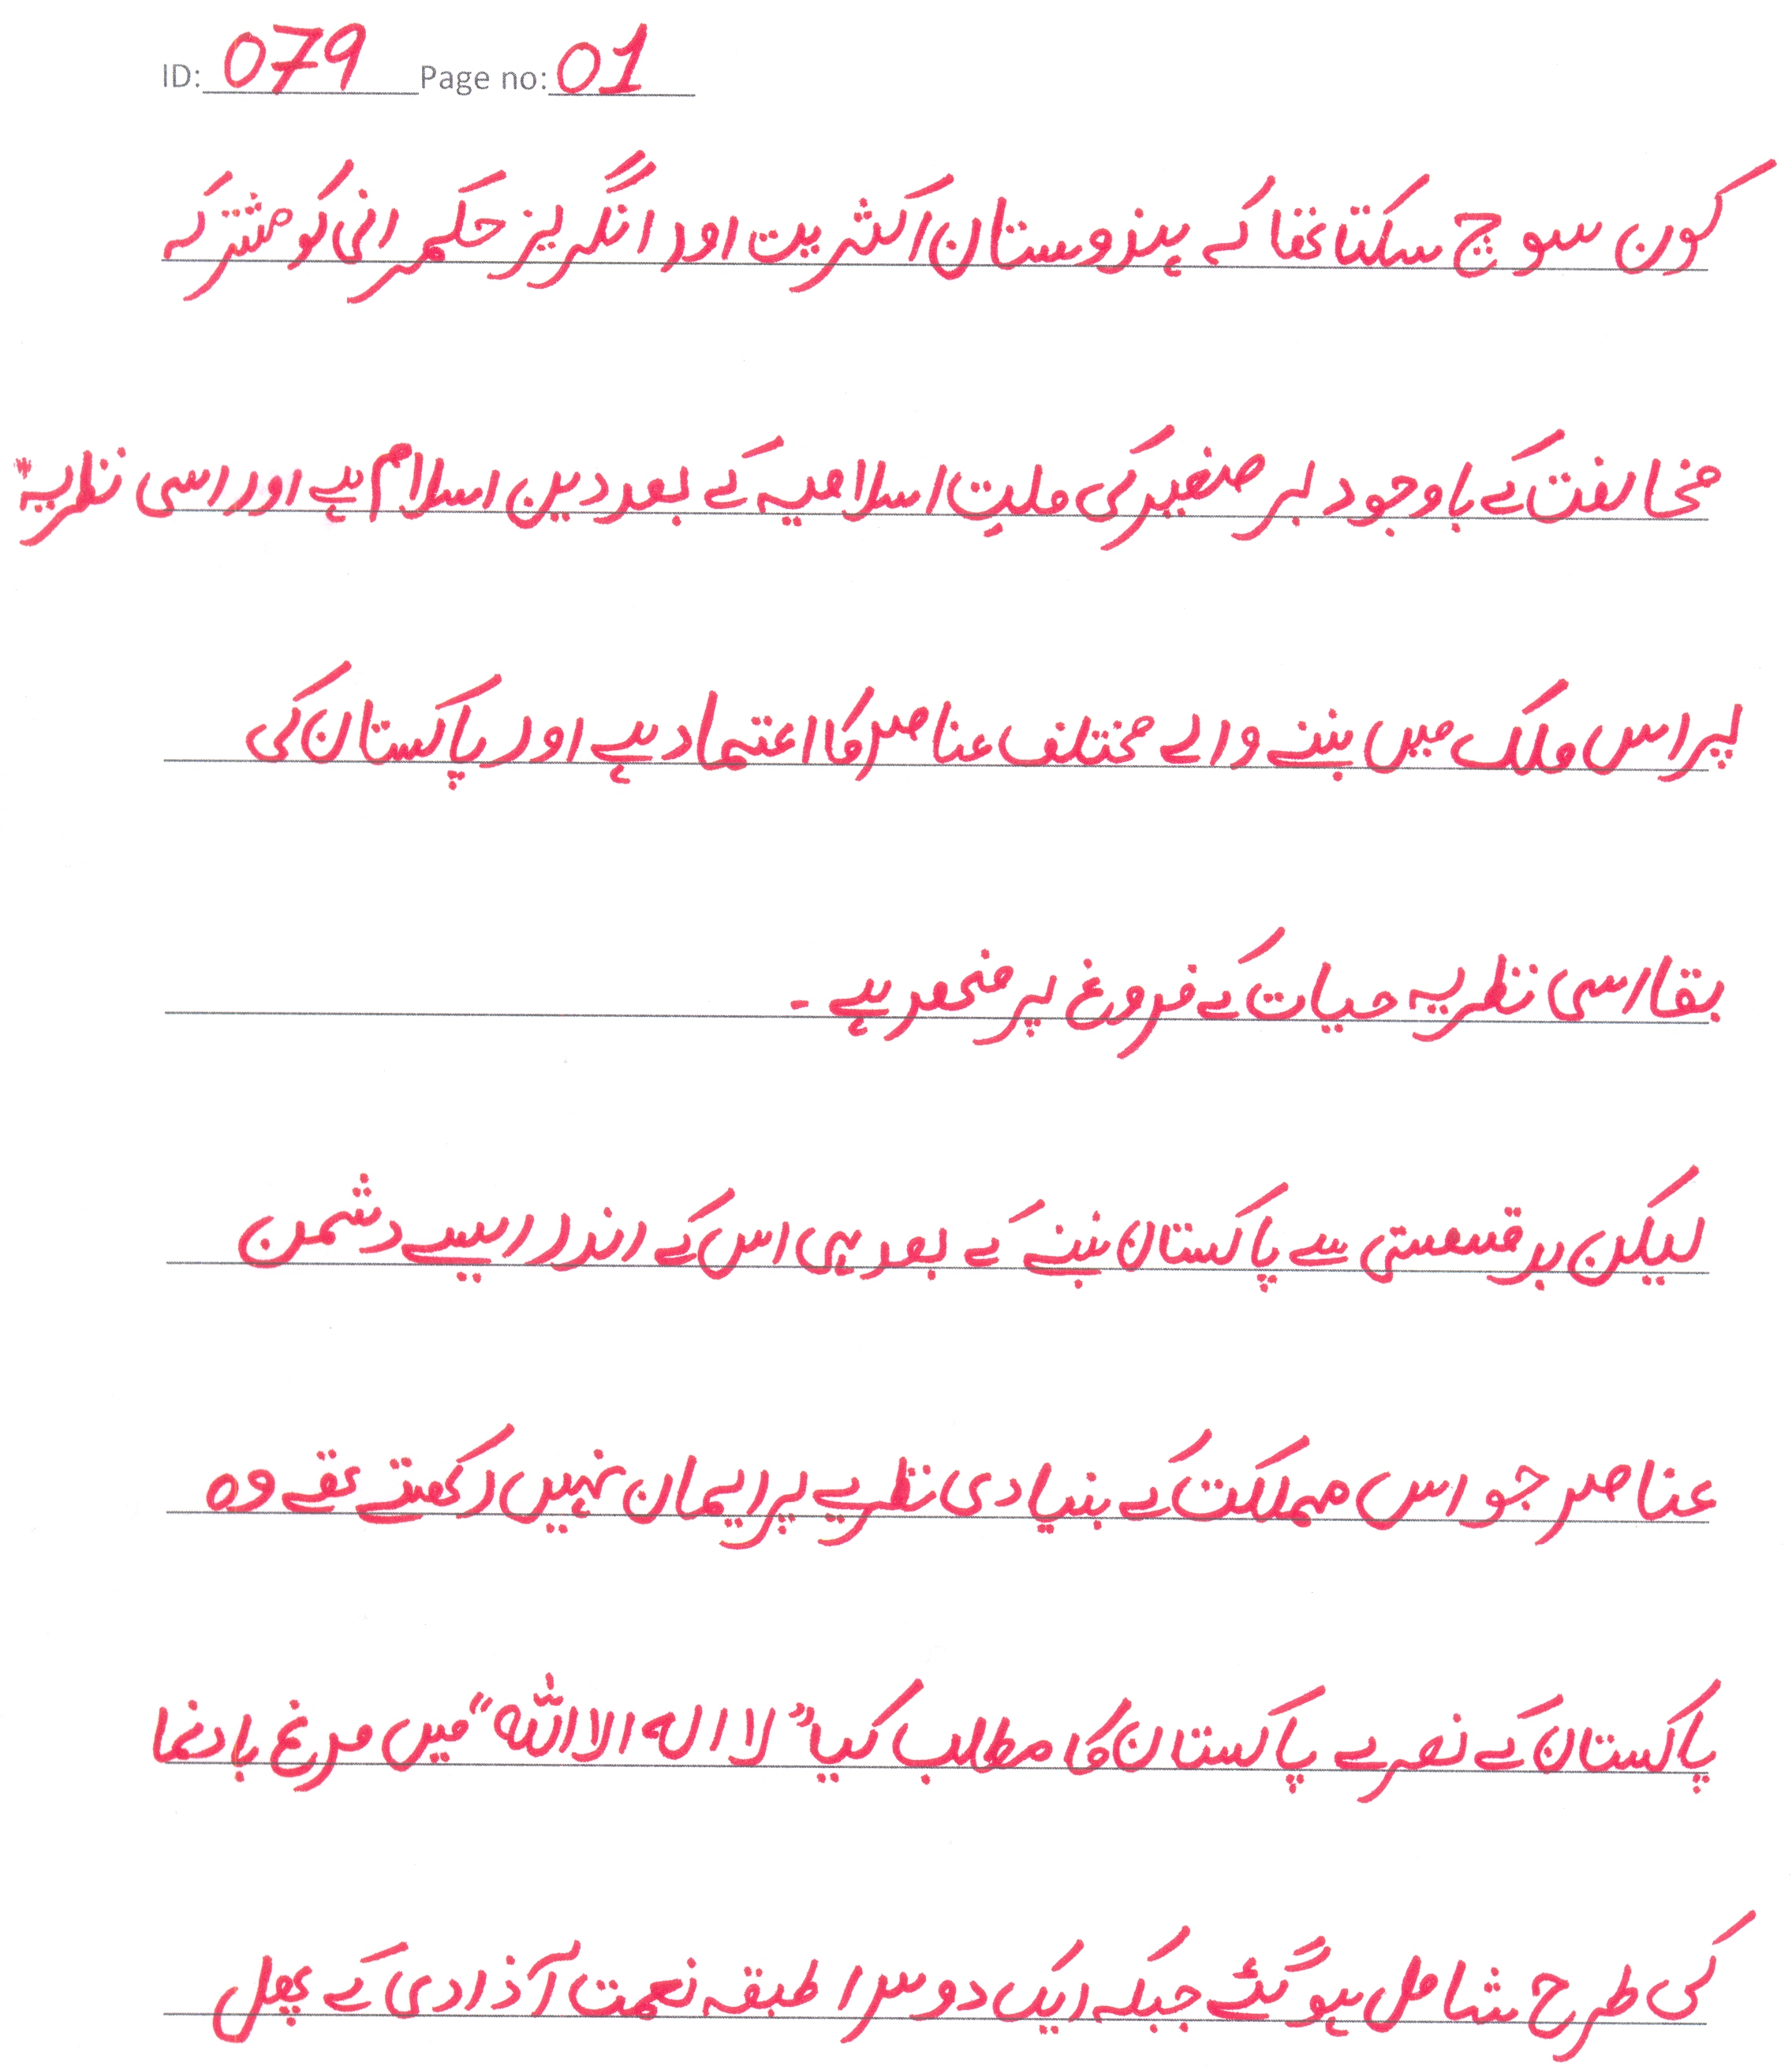 ID: 079 Page no: 01
کون سوچ سکتا تھا کہ ہندوستان اکثریت اور انگریز حکمرانی کو مشترکہ
مخالفت کے باوجود بر صغیر کی ملت اسلامیہ کے بعد دین اسلام ہے اور اسی نظریہ
پر اس ملک میں بننے والے مختلف عناصر کا اعتماد ہے اور پاکستان کی
بقا اسی نظریہ حیات کے فروغ پر منحصر ہے ۔
لیکن بدقسمتی سے پاکستان بننے کے بعد ہی اس کے اندر ایسے دشمن
عناصر جو اس مملکت کے بنیادی نظریے پر ایمان نہیں رکھتے تھے وہ
پاکستان کے نعرے پاکستان کا مطلب کیا "لا الہ الا اللہ" میں مرغ بادنما
کی طرح شامل ہو گئے جبکہ ایک دوسرا طبقہ نعمت آذادی کے پھل